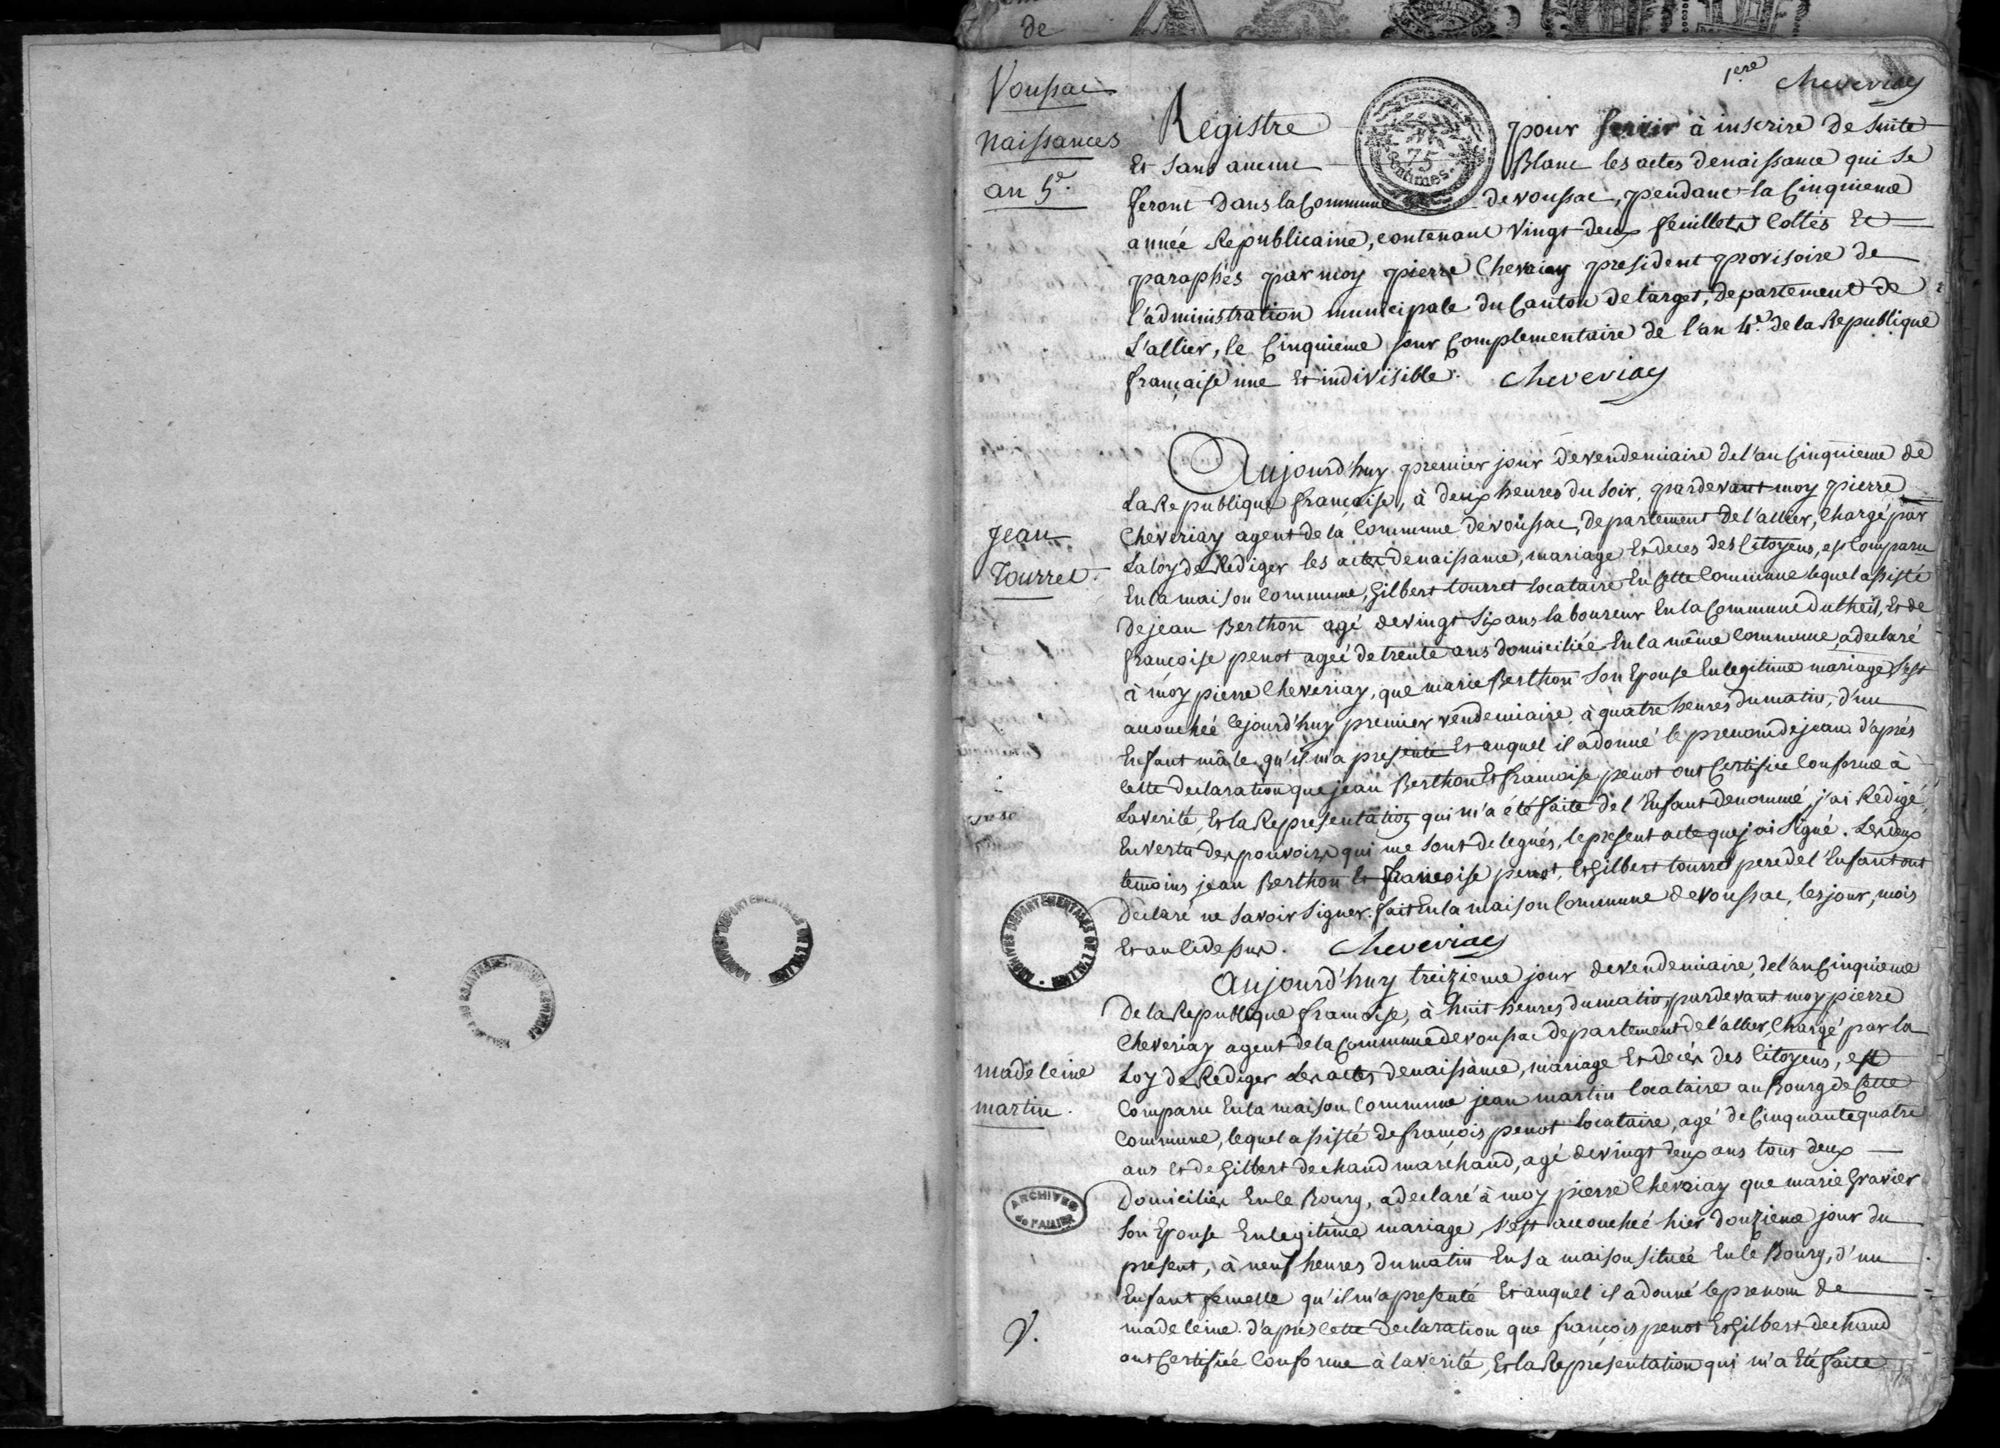 de
Voussac
naissances
an 5e.
1ere Cheveriay
REP. FRA.
75
centimes.
Registre pour servir à inscrire de suite
Et sans aucun Blanc les actes de naissance qui se
feront dans la Commune de voussac, pendant la Cinquieme
année Republicaine, contenant vingt deux feuillets Cottés Et
paraphés par moy pierre Cheveriay president provisoire de
l'administration municipale du Canton de target, departement de
L'allier, le Cinquieme jour Complementaire de l'an 4e. de la Republique
française une Et indivisible. Cheveriay
Jean
Tourret.
Aujourd'huy premier jour de vendemiaire de l'an Cinquieme de
La Republique française, à deux heures du soir, pardevant moy pierre
Cheveriay agent de la Commune de voussac, departement de l'allier, Chargé par
La loy de Rediger les actes de naissance, mariage Et deces des Citoyens, est Comparu
En la maison Commune, Gilbert tourret locataire En Cette Commune lequel assisté
de jean Berthon agé de vingt Six ans laboureur En la Commune du theil, Et de
françoise penot ageé de trente ans domiciliée En la même Commune, a declaré
à moy pierre Cheveriay, que marie Berthon Son Epouse En legitime mariage s'est
accouchée Cejourd'huy premier vendemiaire, à quatre heures du matin, d'un
Enfant mâle qu'il m'a presenté Et auquel il a donné le prenom de jean d'aprés
Cette declaration que jean Berthon Et françoise penot ont Certifiée Conforme à
La verité, Et la Representation qui m'a été faite de l'Enfant denommé, j'ai Redigé,
En vertu des pouvoirs qui me sont delegués, le present acte que j'ai Signé. Les deux
temoins, jean Berthon Et françoise penot, Et Gilbert tourret pere de l'Enfant ont
Declaré ne Savoir Signer. fait En la maison Commune de voussac, les jour, mois
Et an Cidessus. Cheveriay
ARCHIVES DEPARTEMENTALES DE L'ALLIER
madeleine
martin.
Aujourd'huy treizieme jour de vendemiaire, de l'an Cinquieme
de la Republique française, à huit heures du matin, pardevant moy pierre
Cheveriay agent de la Commune de voussac departement de l'allier, Chargé par la
Loy de Rediger Les actes de naissance, mariage Et decés des Citoyens, est
Comparu En la maison Commune jean martin locataire au Bourg de Cette
Commune, lequel assisté de françois penot locataire, agé de Cinquante quatre
ans Et de Gilbert dechand maréchand, agé de vingt deux ans tous deux
Domiciliés En le Bourg, a declaré à moy pierre Cheveriay que marie Gravier
Son Epouse En legitime mariage, s'est accouchée hier douzieme jour du
present, à neuf heures du matin En sa maison située En le Bourg, d'un
Enfant femelle qu'il m'a presenté Et auquel il a donné le prenom de
madeleine. d'aprés Cette declaration que françois penot Et Gilbert dechand
ont Certifiée Conforme à la verité, Et la Representation qui m'a Eté faite
ARCHIVES de l'ALLIER
V.
ARCHIVES DEPARTEMENTALES DE L'ALLIER